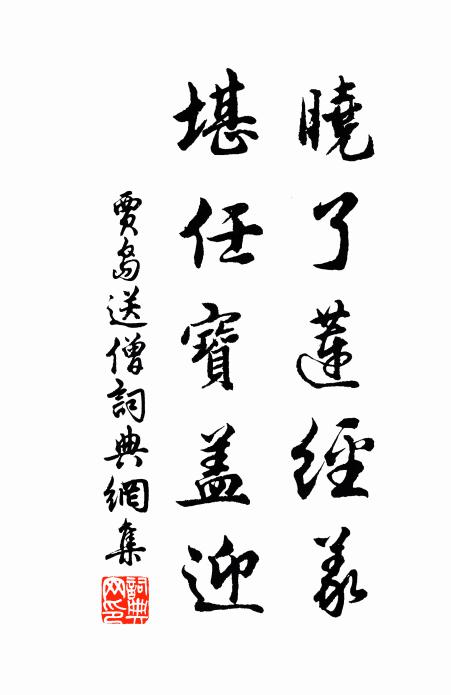 曉了蓮經義
堪任寶盖迎
賈島送僧詞典網集
詞典網印